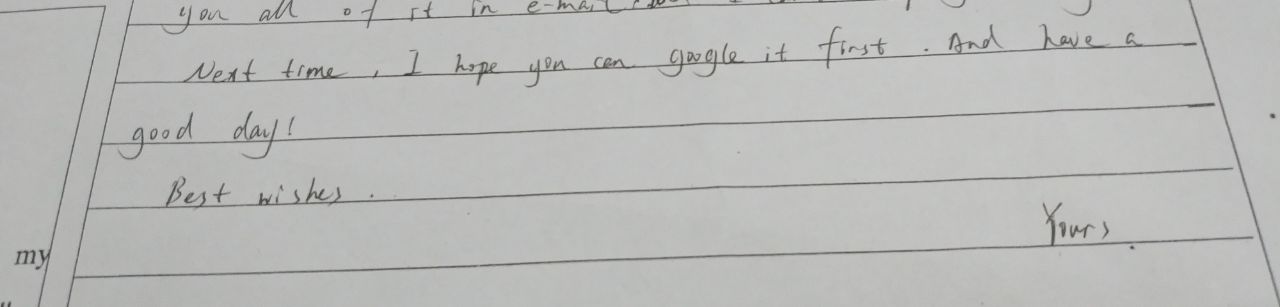 you all of it in e-mail
Next time, I hope you can google it first. And have a
good day!
Best wishes.
Yours.
my